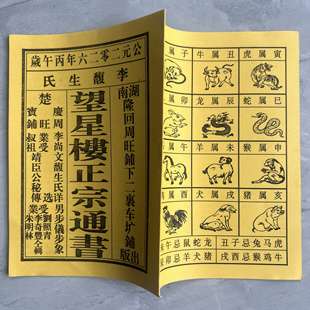 公元二零二六年丙午歲
李馥生氏
湖南隆回周旺鋪下二裏车圹鋪出版
望星樓正宗通書
楚
寶慶周旺鋪
李尚文馥生氏详男步儀步象
業受叔祖靖臣公秘傳
选
受業劉照青李奇豐朱明林全輯
属子 牛属丑 虎属寅
属卯 龙属辰 蛇属巳
属午 羊属未 猴属申
属酉 犬属戌 猪属亥
午忌鼠蛇龙 丑子忌兔马虎
卯忌羊犬猪 戌亥忌猴鸡牛